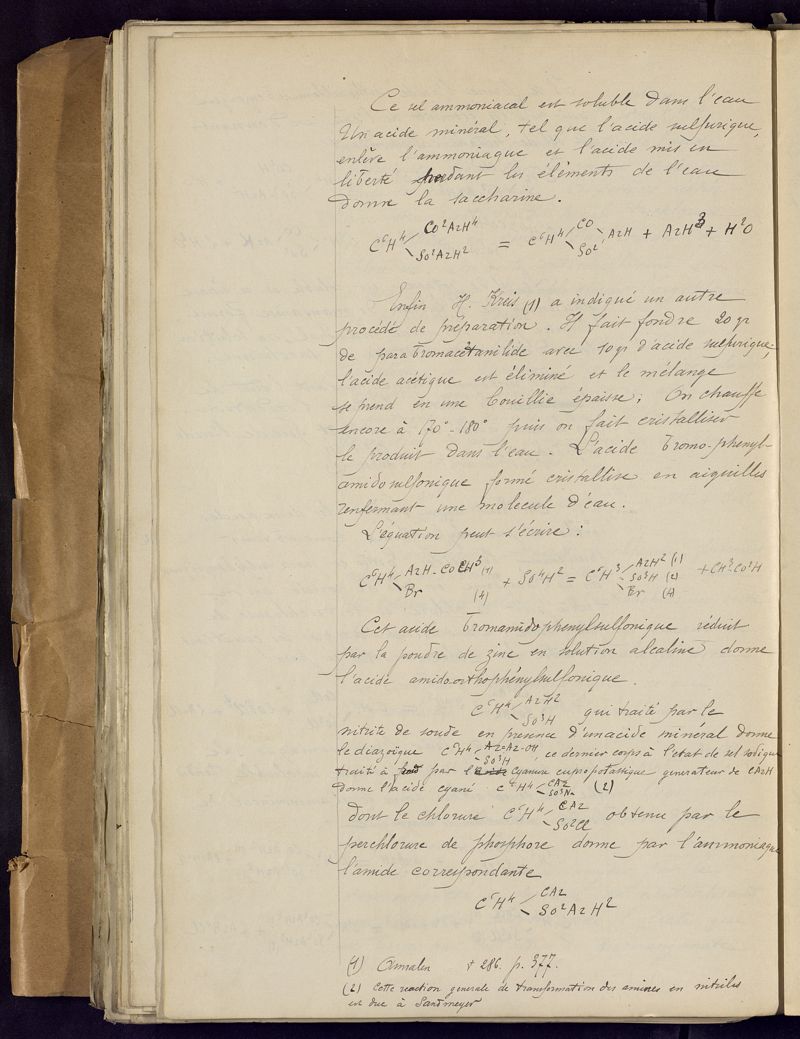 Ce sel ammoniacal est soluble dans l'eau
Un acide minéral, tel que l'acide sulfurique,
enlève l'ammoniaque et l'acide mis en
liberté perdant les éléments de l'eau
donne la saccharine.
C⁶H⁴ CO²AzH⁴ SO²AzH² = C⁶H⁴ CO SO² AzH + AzH³ + H²O
Enfin H. Kreis (1) a indiqué un autre
procédé de préparation. Il fait fondre 20 gr
de parabromacétanilide avec 10 gr d'acide sulfurique;
l'acide acétique est éliminé et le mélange
se prend en une bouillie épaisse; On chauffe
encore à 170° - 180° puis on fait cristalliser
le produit dans l'eau. L'acide bromo-phenyl-
amidosulfonique formé cristallise en aiguilles
renfermant une molecule d'eau.
L'équation peut s'écrire :
C⁶H⁴ AzH - COCH³ (1) Br (4) + SO⁴H² = C⁶H³ AzH² (1) SO³H (2) Br (4) + CH³-CO²H
Cet acide bromamidophenylsulfonique réduit
par la poudre de zinc en solution alcaline donne
l'acide amidoorthophénylsulfonique.
C⁶H⁴ AzH² SO³H qui traité par le
nitrite de soude en présence d'un acide minéral donne
le diazoïque C⁶H⁴ Az=Az-OH SO³H, ce dernier corps à l'etat de sel sodique
traité à froid par le cyanure cupropotassique generateur de CAzH
donne l'acide cyané C⁶H⁴ CAz SO³Na (2)
dont le chlorure C⁶H⁴ CAz SO²Cl obtenu par le
perchlorure de phosphore donne par l'ammoniaque
l'amide correspondante
C⁶H⁴ CAz SO²AzH²
(1) Annalen t 286. p. 377.
(2) Cette reaction generale de transformation des amines en nitriles
est due à Sandmeyer